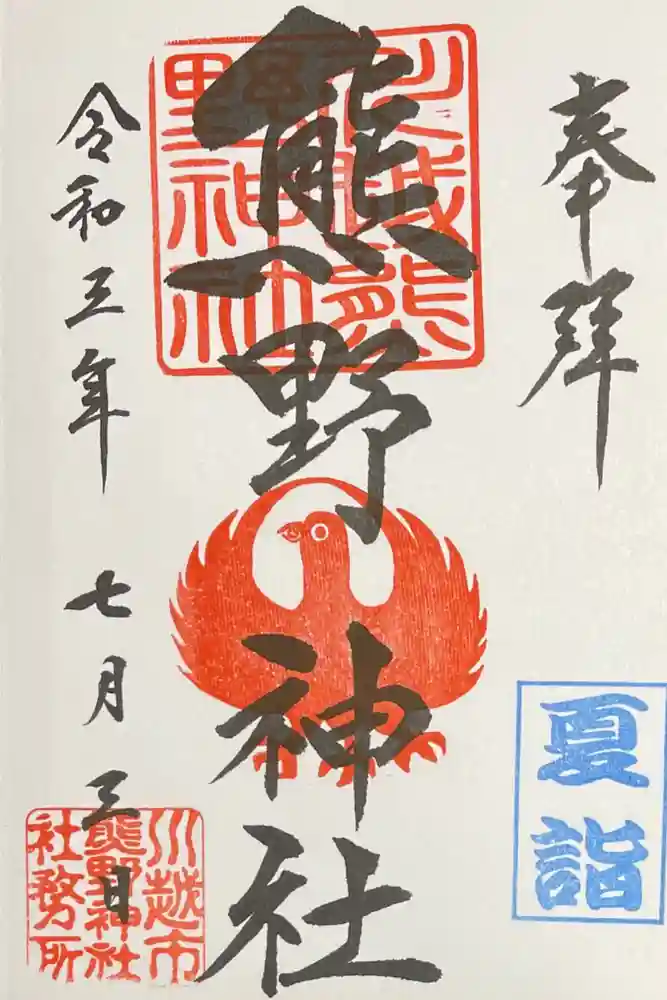 奉拝
夏詣
熊野神社
川越熊
野神社
令和三年 七月三日
川越市
熊野神社
社務所